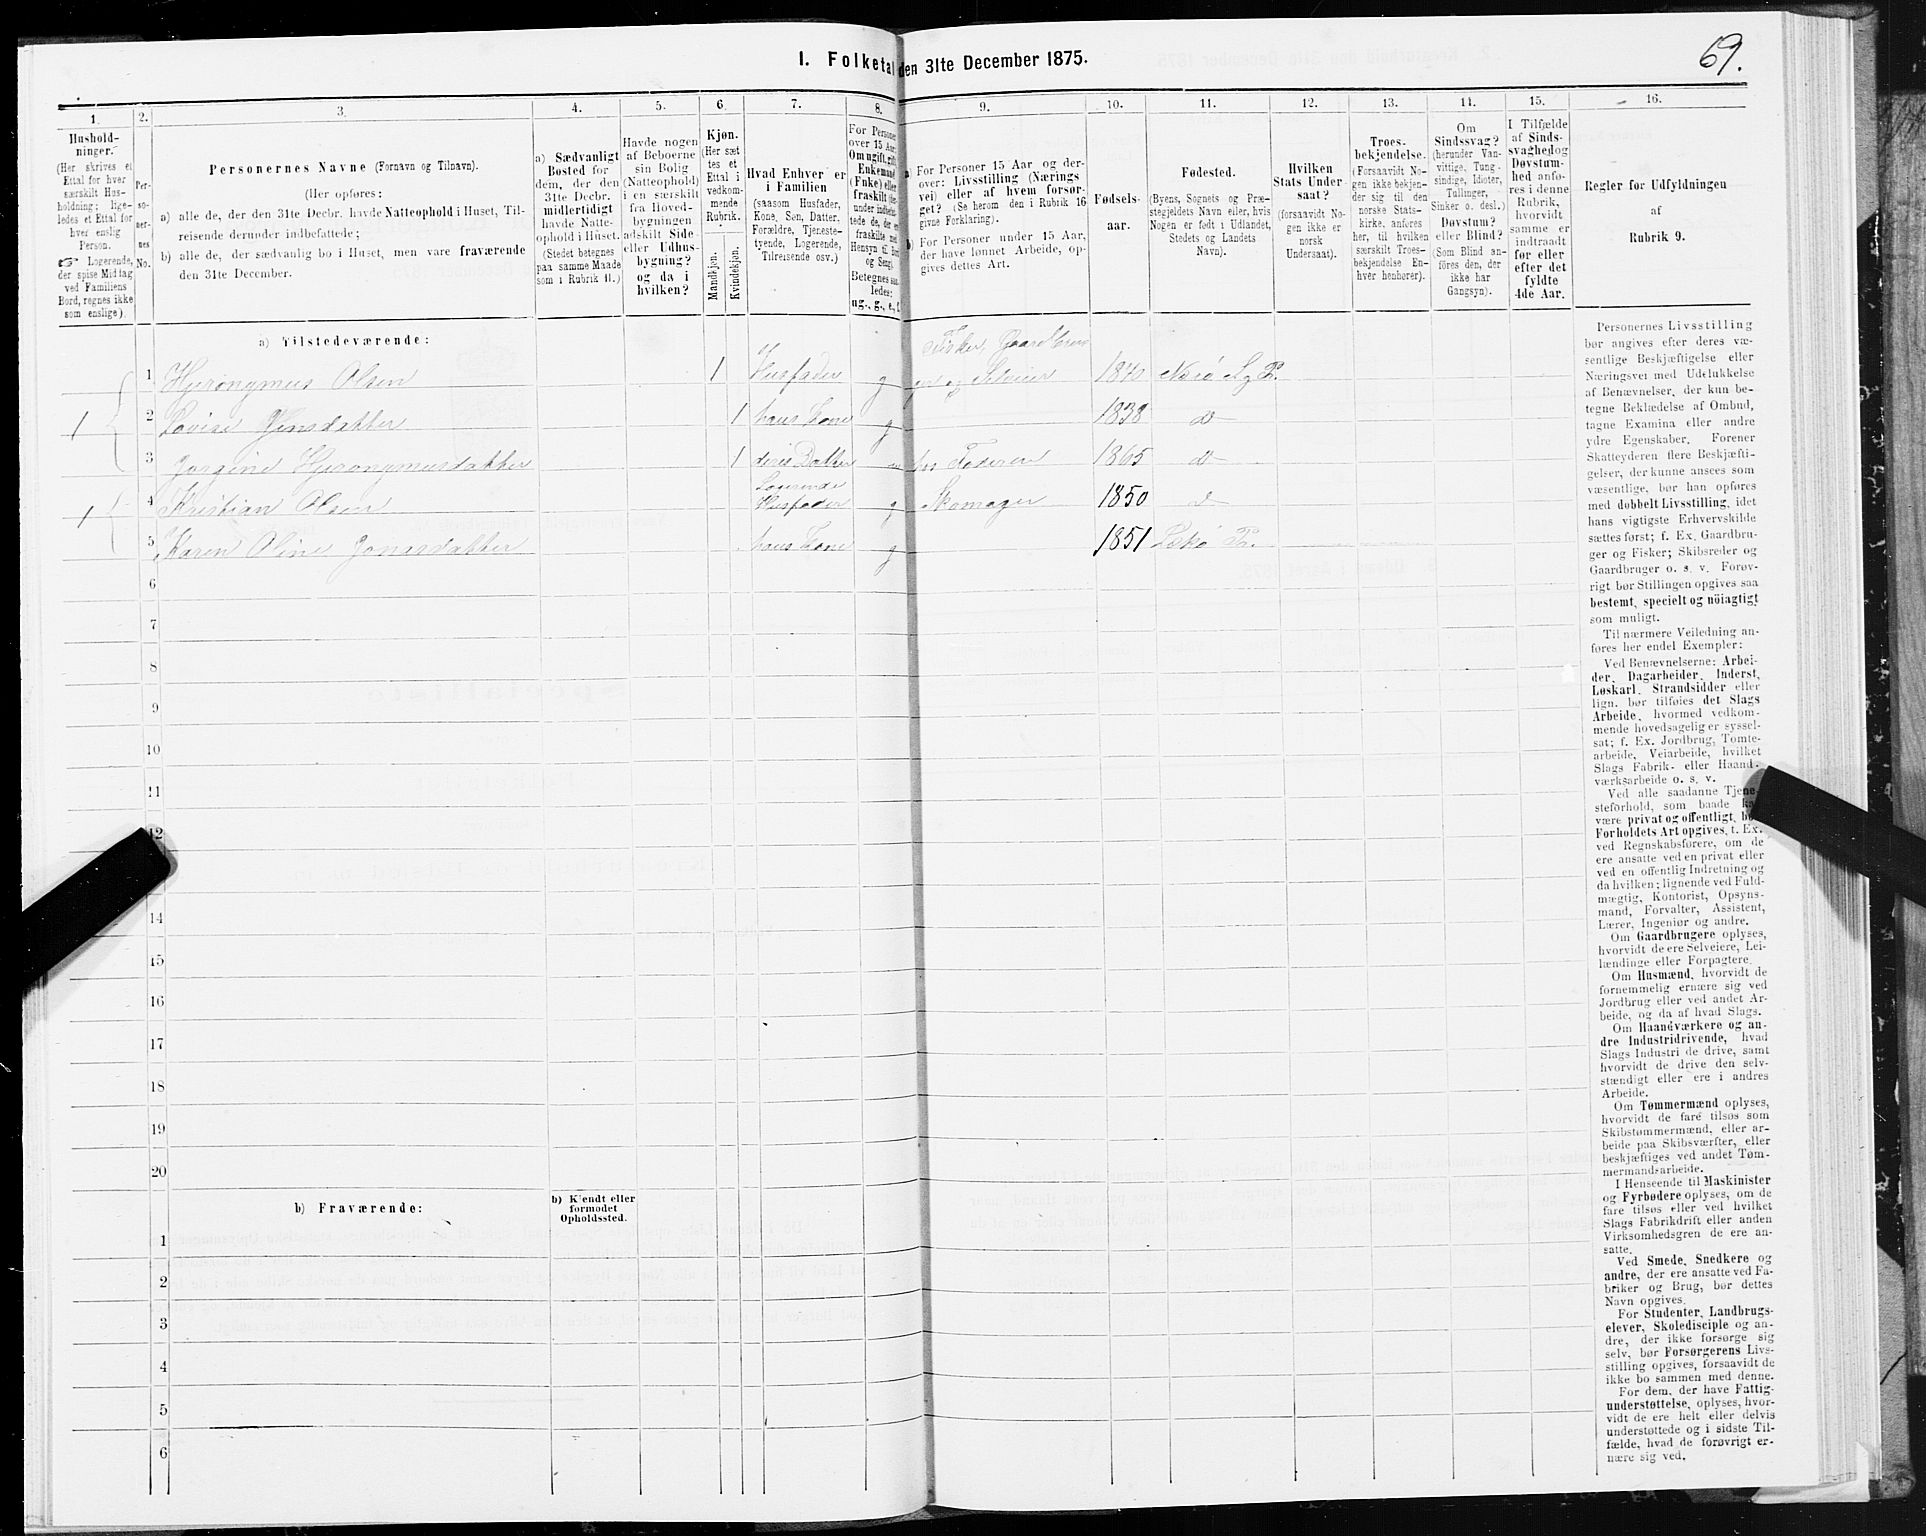 69.
I. Folketal den 31te December 1875.
1.
2.
3.
4.
5.
6.
7.
8.
9.
10.
11.
12.
13.
14.
15.
16.
Hushold-
ninger.
(Her skrives et
Ettal for hver
særskilt Hus-
holdning; lige-
ledes et Ettal for
hver enslig
Person.
☞ Logerende,
der spise Middag
ved Familiens
Bord, regnes ikke
som enslige).
Per-
so-
ner-
nes
No.
Personernes Navne (Fornavn og Tilnavn).
(Her opføres:
a) alle de, der den 31te Decbr. havde Natteophold i Huset, Til-
reisende derunder indbefattede;
b) alle de, der sædvanlig bo i Huset, men vare fraværende
den 31te December.
a) Sædvanligt
Bosted for
dem, der den
31te Decbr.
midlertidigt
havde Natte-
ophold i Huset.
(Stedet betegnes
paa samme Maade
som i Rubrik 11.)
Havde nogen
af Beboerne
sin Bolig
(Natteophold)
i en særskilt
fra Hoved-
bygningen
adskilt Side-
eller Udhus-
bygning?
og da i
hvilken?
Kjøn.
(Her sæt
tes et
Ettal i
vedkom-
mende
Rubrik.
Mandkjøn.
Kvindekjøn.
Hvad Enhver er
i Familien
(saasom Husfader,
Kone, Søn, Datter,
Forældre, Tjeneste-
tyende, Logerende,
Tilreisende osv.)
For Personer
over 15 Aar:
Om ugift, gift,
Enkemand
(Enke) eller
fraskilt (der-
under indbefat-
tede de, der ere
fraskilte med
Hensyn til Bord
og Seng).
Betegnes saa-
ledes:
ug., g., e., f.
a) For Personer 15 Aar og der-
over: Livsstilling (Nærings
vei) eller af hvem forsør-
get? (Se herom den i Rubrik 16
givne Forklaring).
b) For Personer under 15 Aar,
der have lønnet Arbeide, op-
gives dettes Art.
Fødsels-
aar.
Fødested.
(Byens, Sognets og Præ-
stegjeldets Navn eller, hvis
Nogen er født i Udlandet,
Stedets og Landets
Navn).
Hvilken
Stats Under-
saat?
(forsaavidt No-
gen ikke er
norsk
Undersaat).
Troes-
bekjendelse.
(Forsaavidt No-
gen ikke bekjen-
der sig til den
norske Stats-
kirke, anføres
her, til hvilken
særskilt Troes-
bekjendelse En-
hver henhører).
Om
Sindssvag?
(herunder Van-
vittige, Tung-
sindige, Idioter,
Tullinger,
Sinker o. desl.)
Døvstum?
eller Blind?
(Som Blind an-
føres den, der
ikke har
Gangsyn).
I Tilfælde
af Sinds-
svaghed og
Døvstum-
hed anfø-
res i denne
Rubrik,
hvorvidt
samme er
indtraadt
før eller
efter det
fyldte
4de Aar.
Regler for Udfyldningen
af
Rubrik 9.
a) Tilstedeværende:
1 1 Hyronymus Olsen 1 Husfader g Fisker, Gaardbru
ger og Selveier 1840 Nærö S. & P.
2 Lovise Jensdatter 1 hans Kone g 1838 do
3 Jorgine Hyronymusdatter 1 deres Datter hos Faderen 1865 do
1 4 Kristian Olsen Logerende
Husfader g Skomager 1850 do
5 Karen Oline Jonasdatter hans Kone g 1851 Lekö Pr.
6
7
8
9
10
11
12
14
15
16
17
18
19
20
b) Fraværende:
b) Kjendt eller
formodet
Opholdssted.
1
2
3
4
5
6
Personernes Livsstilling
bør angives efter deres væ-
sentlige Beskjæftigelse eller
Næringsvei med Udelukkelse
af Benævnelser, der kun be-
tegne Beklædelse af Ombud,
tagne Examina eller andre
ydre Egenskaber. Forener
Skatteyderen flere Beskjæfti-
gelser, der kunne ansees som
væsentlige, bør han opføres
med dobbelt Livsstilling, idet
hans vigtigste Erhvervskilde
sættes først; f. Ex. Gaardbru-
ger og Fisker; Skibsreder og
Gaardbruger o. s. v. Forøv-
rigt bør Stillingen opgives saa
bestemt, specielt og nöiagtigt
som muligt.
Til nærmere Veiledning an-
føres her endel Exempler:
Ved Benævnelserne: Arbei-
der, Dagarbeider, Inderst,
Løskarl, Strandsidder eller
lign. bør tilføies det Slags
Arbeide, hvormed vedkom-
mende hovedsagelig er syssel-
sat; f. Ex. Jordbrug, Tomte-
arbeide, Veiarbeide, hvilket
Slags Fabrik- eller Haand-
værksarbeide o. s. v.
Ved alle saadanne Tjene-
steforhold, som baade ka
være privat og offentligt, bø
Forholdets Art opgives, t. Ex.
ved Regnskabsførere, om de
ere ansatte ved en privat eller
ved en offentlig Indretning og
da hvilken; lignende ved Fuld-
mægtig, Kontorist, Opsyns-
mand, Forvalter, Assistent,
Lærer, Ingeniør og andre.
Om Gaardbrugere oplyses,
hvorvidt de ere Selveiere, Lei-
lændinge eller Forpagtere.
Om Husmænd, hvorvidt de
fornemmelig ernære sig ved
Jordbrug eller ved andet Ar-
beide, og da af hvad Slags.
Om Haandværkere og an-
dre Industridrivende, hvad
Slags Industri de drive, samt
hvorvidt de drive den selv-
stændigt eller ere i andres
Arbeide.
Om Tømmermænd oplyses,
hvorvidt de fare tilsøs som
Skibstømmermænd, eller ar-
beide paa Skibsværfter, eller
beskjæftiges ved andet Tøm-
mermandsarbeide.
I Henseende til Maskinister
og Fyrbødere oplyses, om de
fare tilsøs eller ved hvilket
Slags Fabrikdrift eller anden
Virksomhedsgren de ere an-
satte.
Ved Smede, Snedkere og
andre, der ere ansatte ved Fa-
briker og Brug, bør dettes
Navn opgives.
For Studenter, Landbrugs-
elever, Skoledisciple og an-
dre, der ikke forsørge sig
selv, bør Forsørgerens Livs-
stilling opgives, forsaavidt de
ikke bo sammen med denne.
For dem, der have Fattig-
understøttelse, oplyses, hvor-
vidt de ere helt eller delvis
understøttede og i sidste Til-
fælde, hvad de forøvrigt er-
nære sig ved.